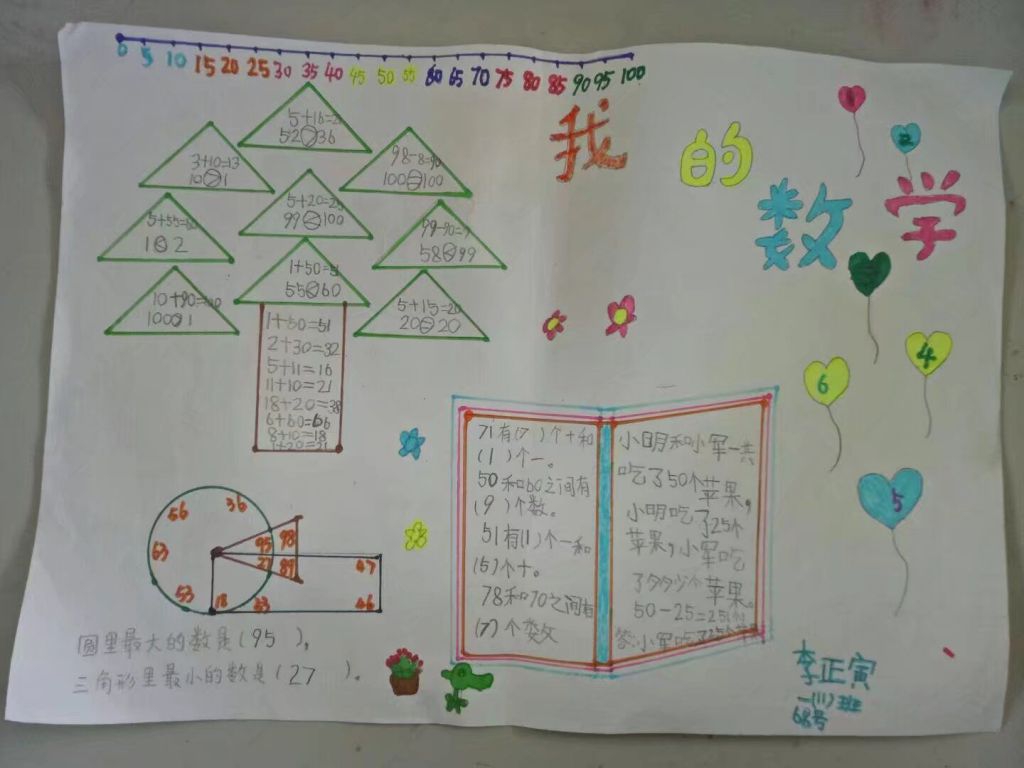 0 5 10 15 20 25 30 35 40 45 50 55 80 65 70 75 80 85 90 95 100
我的数学
1
2
4
6
5
52<36
3+10=13
10>1
98-8=90
100=100
5+20=25
99<100
5+55=60
1<2
58<99
1+50=51
55<60
10+90=100
100>1
5+15=20
20=20
1+50=51
2+30=32
5+11=16
11+10=21
18+20=38
6+60=66
8+10=18
71有(7)个十和
(1)个一。
50和60之间有
(9)个数。
51有(1)个一和
(5)个十。
78和70之间有
(7)个数
小明和小军一共
吃了50个苹果,
小明吃了25个
苹果,小军吃
了多少个苹果。
50-25=25(个)
答:小军吃了25个苹果
56 36
63 95 98
27 89 47
53 18 33 46
圆里最大的数是(95)。
三角形里最小的数是(27)。
李正寅
一(11)班
68号